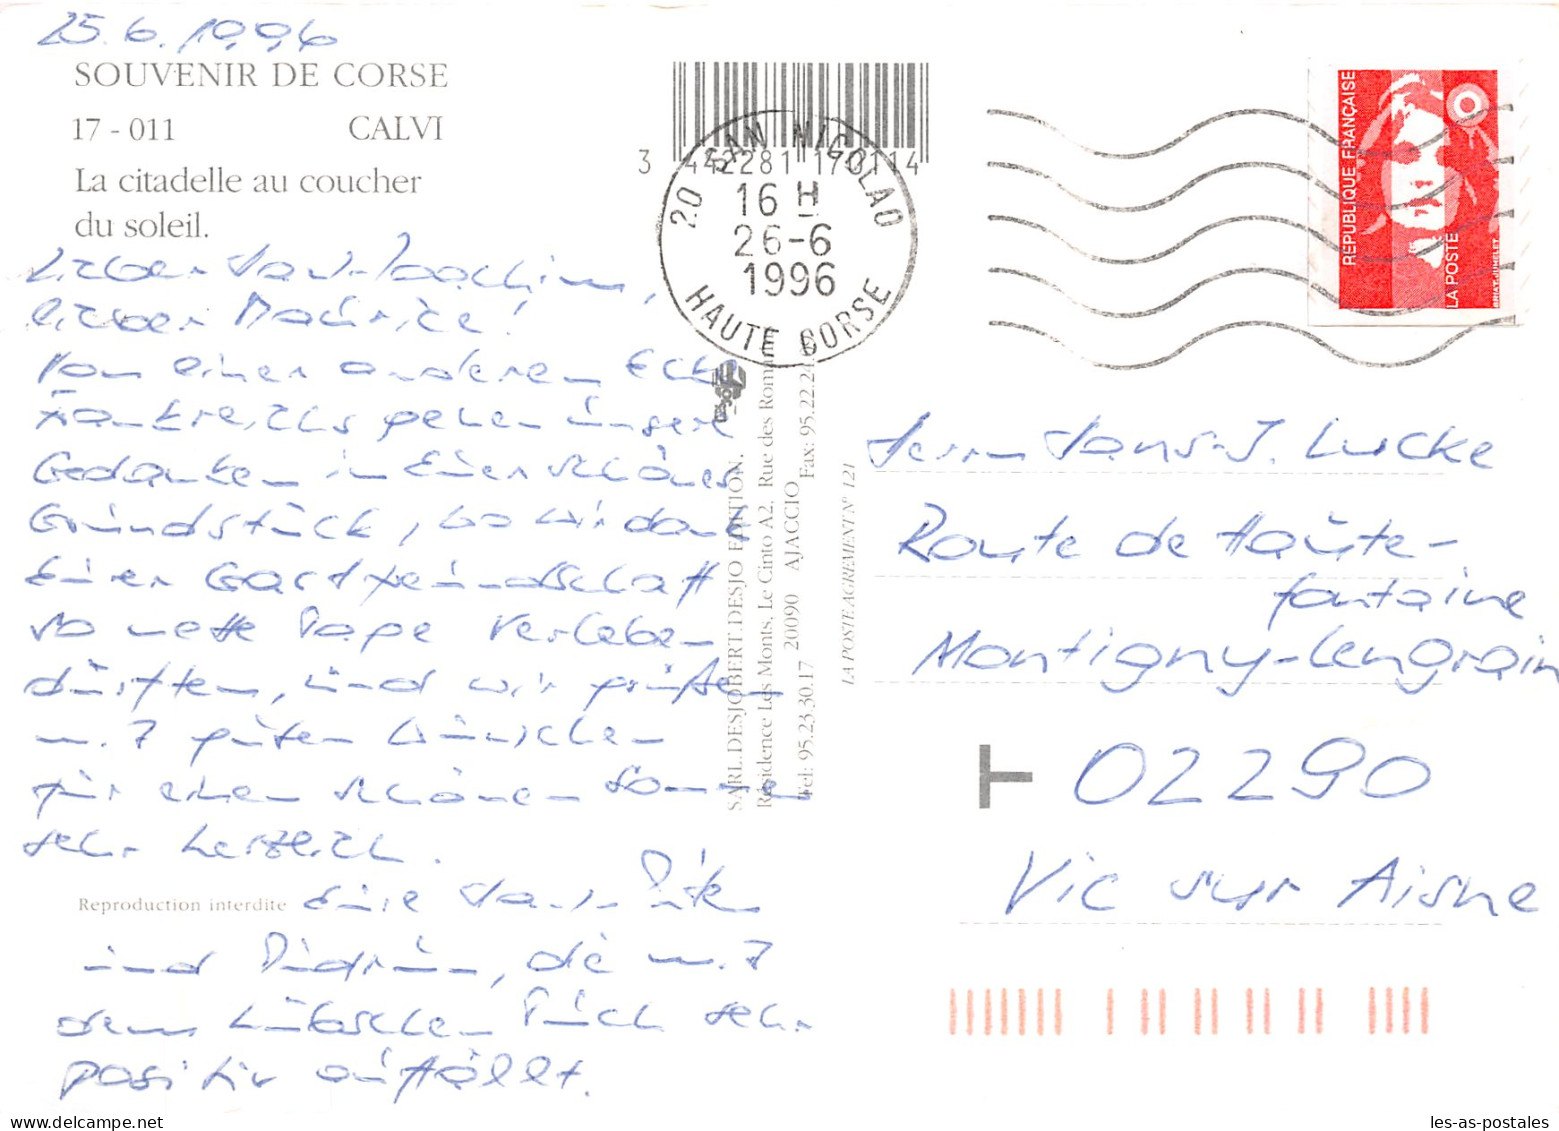 25.6.1996
SOUVENIR DE CORSE
17 - 011 CALVI
La citadelle au coucher
du soleil.
Lieber Hans-Joachim,
lieber Maurice!
Von einer anderen Ecke
Frankreichs gehen unsere
Gedanken in Euer schönes
Grundstück, wo wir dank
Eurer Gastfreundschaft
so nette Tage verleben
durften, und wir grüßen
m. guten Wünschen
für einen schönen Sommer
sehr herzlich.
Reproduction interdite
Eure Hans-
und die m.
dem hübschen sehr
positiv auffällt.
3 442281 170114
20 SAN NICOLAO
16 H
26-6
1996
HAUTE CORSE
SARL.DESJOBERT DESJO EDITION.
Résidence Les Monts, Le Cinto A2, Rue des
20090 AJACCIO
Tel: 95.23.30.17 Fax: 95.22.24
LA POSTE AGREMENT N° 121
REPUBLIQUE FRANÇAISE
LA POSTE
BRIAT-JUMELET
Herrn Hans-J. Lucke
Route de Haute-
fontaine
Montigny-Lengrain
T 02290
Vic sur Aisne
les-as-postales